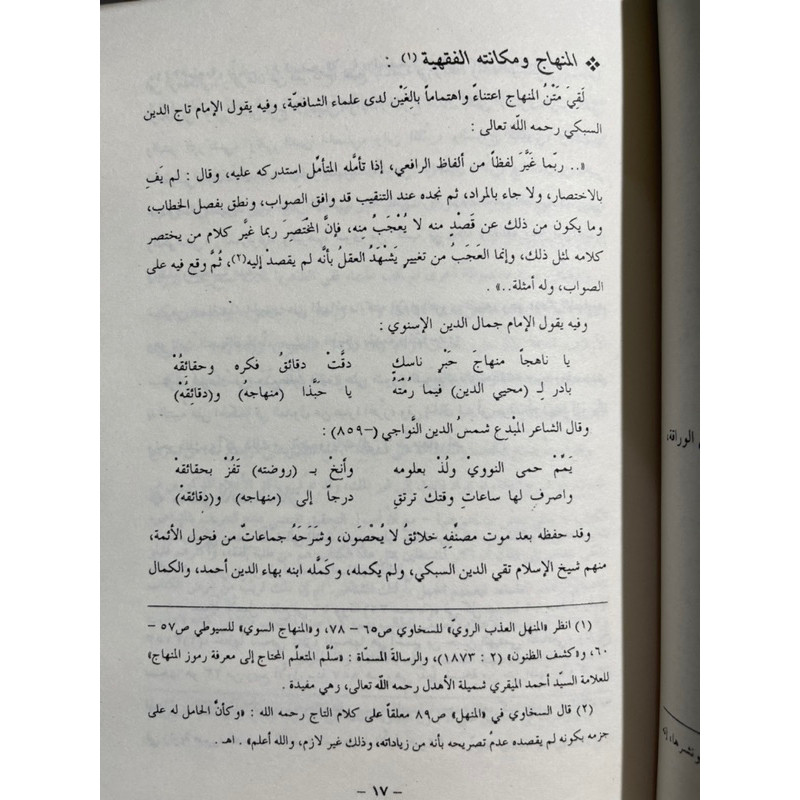 ❖ المنهاج ومكانته الفقهية (١) :
لَقِيَ مَتْنُ المنهاج اعتناءً واهتماماً بالِغَيْن لدى علماء الشافعيّة، وفيه يقول الإمام تاج الدين
السبكي رحمه الله تعالى :
«.. ربّما غَيَّرَ لفظاً من ألفاظ الرافعي، إذا تأمّله المتأمّل استدركه عليه، وقال : لم يَفِ
بالاختصار، ولا جاء بالمراد، ثم نجده عند التنقيب قد وافق الصواب، ونطق بفصل الخطاب،
وما يكون من ذلك عن قَصْدٍ منه لا يُعْجَبُ مِنه، فإنَّ المُخْتَصِرَ ربما غيَّر كلام من يختصر
كلامه لمثل ذلك، وإنما العَجَبُ من تغييرٍ يَشْهَدُ العقلُ بأنَّه لم يقصدْ إليه(٢)، ثُمَّ وقع فيه على
الصواب، وله أمثلة..» .
وفيه يقول الإمام جمال الدين الإسنوي :
يا ناهجاً منهاجَ حَبْرٍ ناسكٍ دقَّتْ دقائقُ فكره وحقائقُهْ
بادر لِـ (محيي الدين) فيما رُمْتَهُ يا حَبَّذا (منهاجهُ) و(دقائِقُهْ)
وقال الشاعر المُبْدِع شمسُ الدين النَّواجي (-٨٥٩) :
يَمِّمْ حمى النوويِّ ولُذْ بعلومه وأَنِخْ بـ (روضته) تَفُزْ بحقائقهْ
واصرفِ لها ساعاتِ وقتكَ ترتقِ درجاً إلى (منهاجه) و(دقائقهْ)
وقد حفظه بعد موت مصنِّفِهِ خلائقُ لا يُحْصَون، وشَرَحَهُ جماعاتٌ من فحول الأئمة،
منهم شيخ الإسلام تقي الدين السبكي، ولم يكمله، وكَمَّله ابنه بهاء الدين أحمد، والكمال
(١) انظر «المنهل العذب الرويّ» للسخاوي ص٦٥ – ٧٨، و«المنهاج السوي» للسيوطي ص٥٧ –
٦٠، و«كشف الظنون» (٢ : ١٨٧٣)، والرسالةَ المسمّاة : «سُلَّم المتعلّم المحتاج إلى معرفة رموز المنهاج»
للعلامة السيّد أحمد الميقري شميلة الأهدل رحمه الله تعالى، وهي مفيدة .
(٢) قال السخاوي في «المنهل» ص٨٩ معلقاً على كلام التاج رحمه الله : «وكأنَّ الحامل له على
جزمه بكونه لم يقصده عدمُ تصريحه بأنه من زياداته، وذلك غير لازم، والله أعلم» . اهـ .
– ١٧ –
الوراقة،